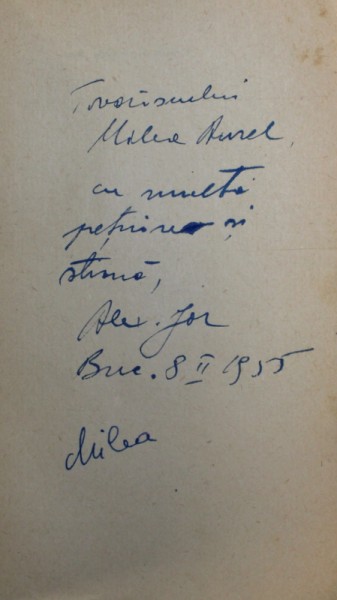 Tovarășului
Milea Aurel,
cu multă
prețuire și
stimă,
Alex. Jar
Buc. 8 II 1955
Milea